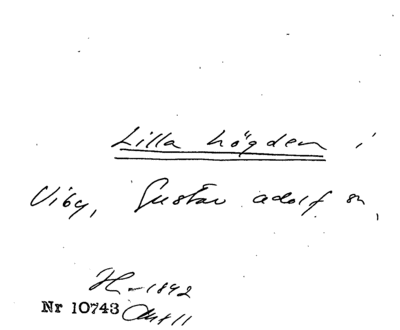 Lilla högden i
Viby, Gustav adolf sn,
1842
Nr 10743